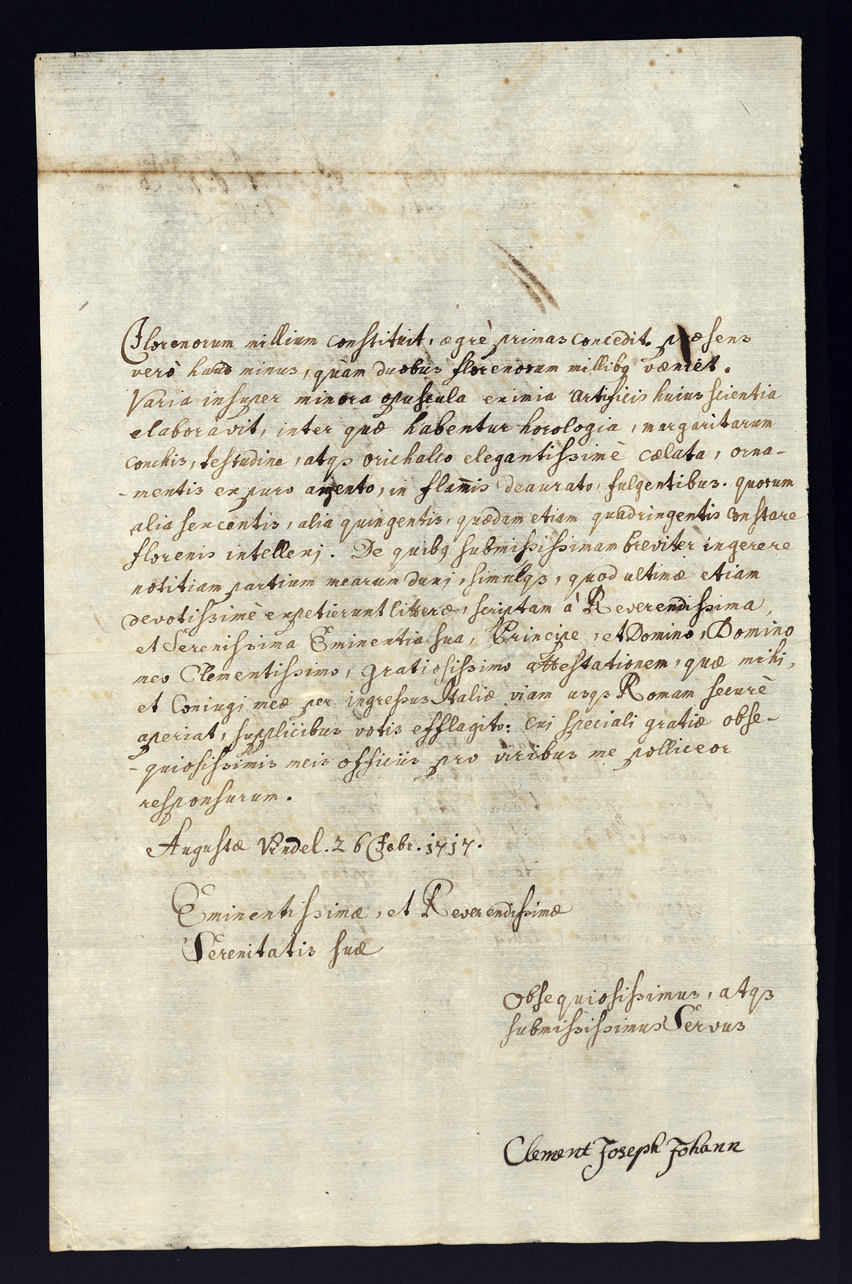 Florenorum millium constituit, ægrè primas concedit. præsens
verò haud minus, quàm duobus florenorum millibq væniet.
Varia insuper minora opuscula eximia artificis huius scientia
elaboravit, inter quæ habentur horologia, margaritarum
conchis, testudine, atqs orichalco elegantissimè cælata, orna-
-mentis ex puro argento, in flam̄is deaurato, fulgentibus. quorum
alia sexcentis, alia quingentis, quædam etiam quadringentis constare
florenis intellexj. De quibq submississimam breviter ingerere
notitiam partium mearum duxj, simulqs, quod ultimæ etiam
devotissimè expetierunt litteræ, scriptam à Reverendissima,
et Serenissima Eminentia sua, Principe, et Domino, Domino
meo Clementissimo, gratiosissimo attestationem, quæ mihi,
et Coniugi meæ per ingressus Italiæ viam usqs Romam securè
aperiat, supplicibus votis efflagito: cuj speciali gratiæ obse-
-quiosissimis meis officiis pro viribus me polliceor
responsurum.
Augustæ Vindel. 26 Febr. 1717.
Eminentissimæ, et Reverendissimæ
Serenitatis suæ
Obsequiosissimus, atqs
submississimus Servus
Clement Joseph Johann